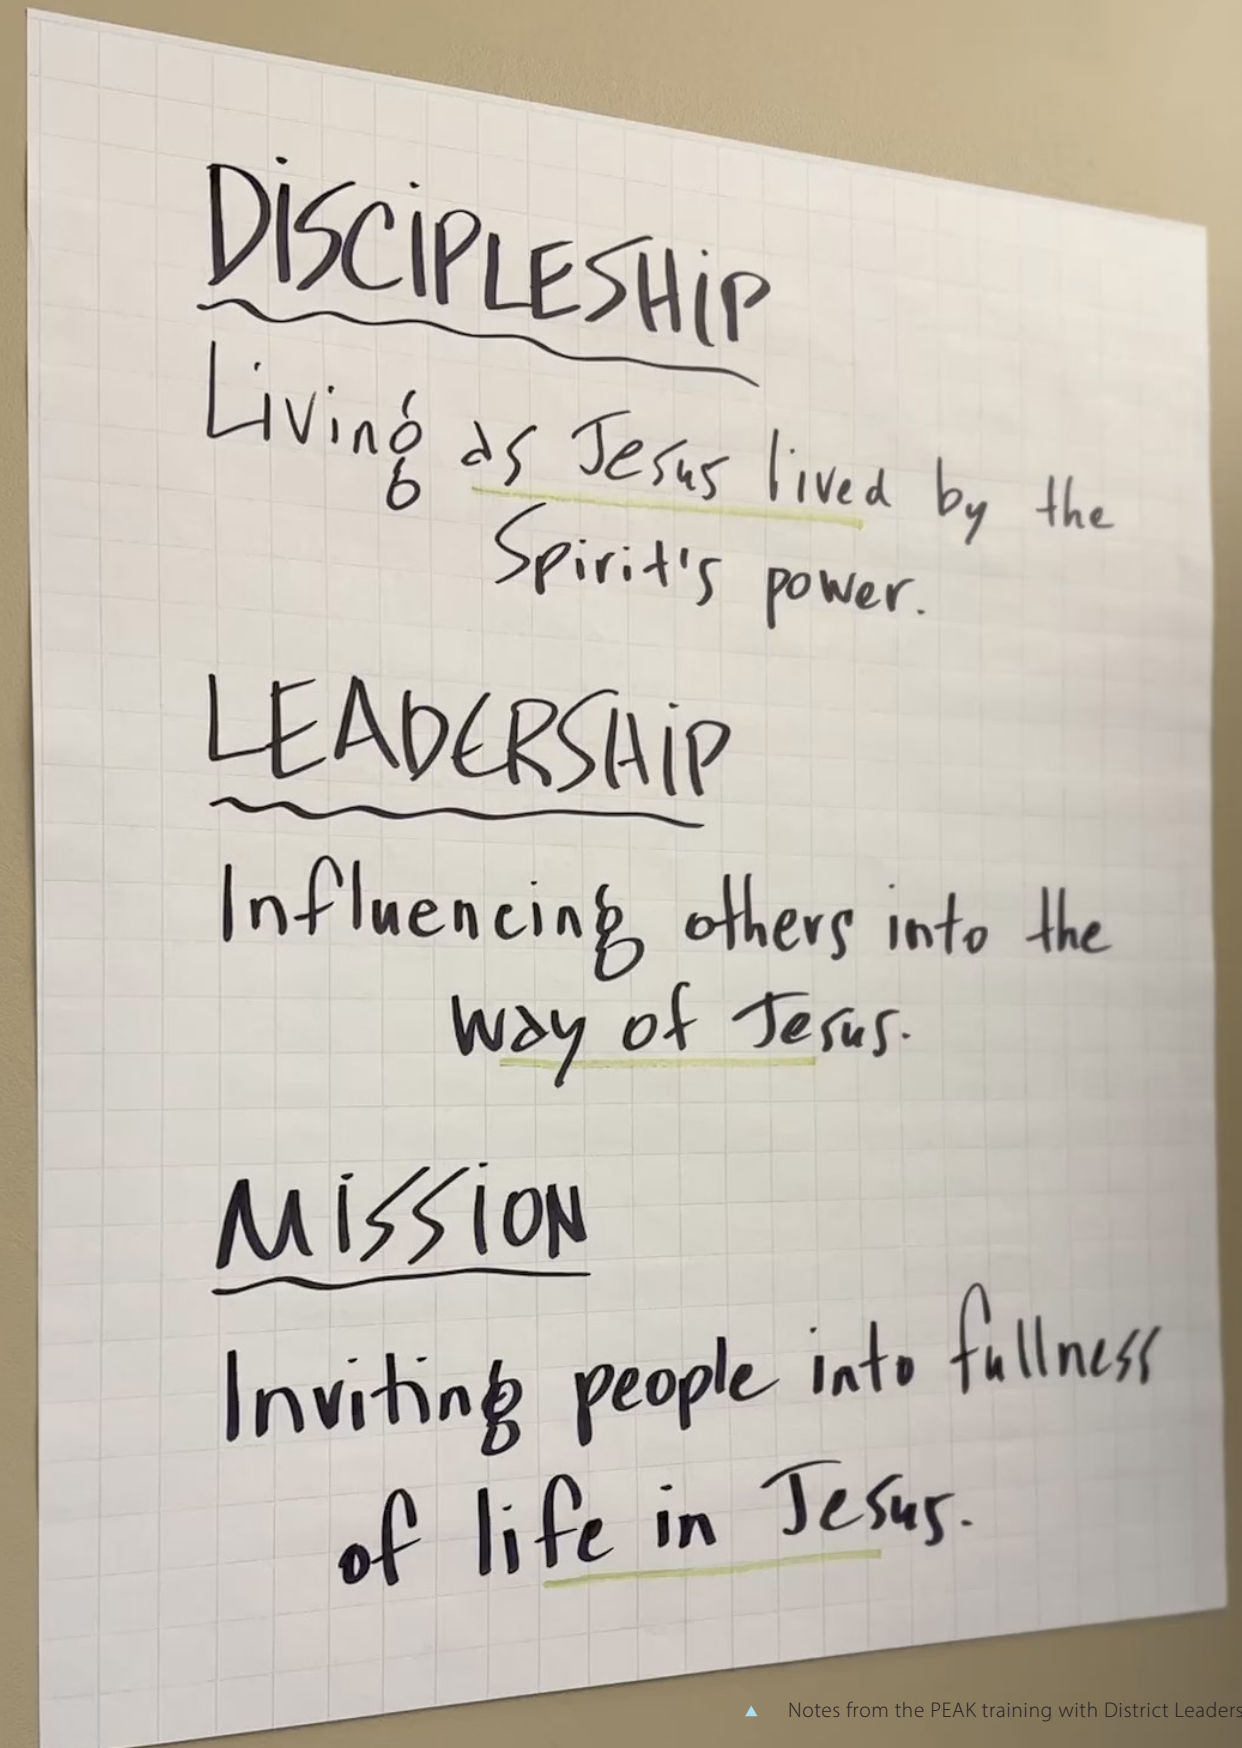 DISCIPLESHIP
Living as Jesus lived by the
Spirit's power.
LEADERSHIP
Influencing others into the
way of Jesus.
MISSION
Inviting people into fullness
of life in Jesus.
Notes from the PEAK training with District Leaders